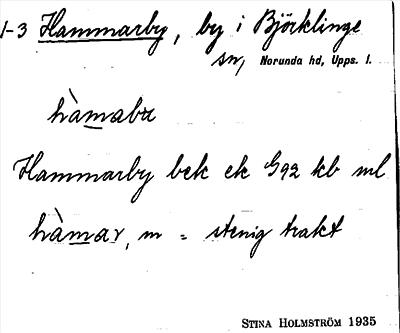 1-3 Hammarby, by i Björklinge
sn, Norunda hd, Upps. l.
hàmabu
Hammarby bek ek G92 kb ml
hàmar, m = stenig trakt
STINA HOLMSTRÖM 1935